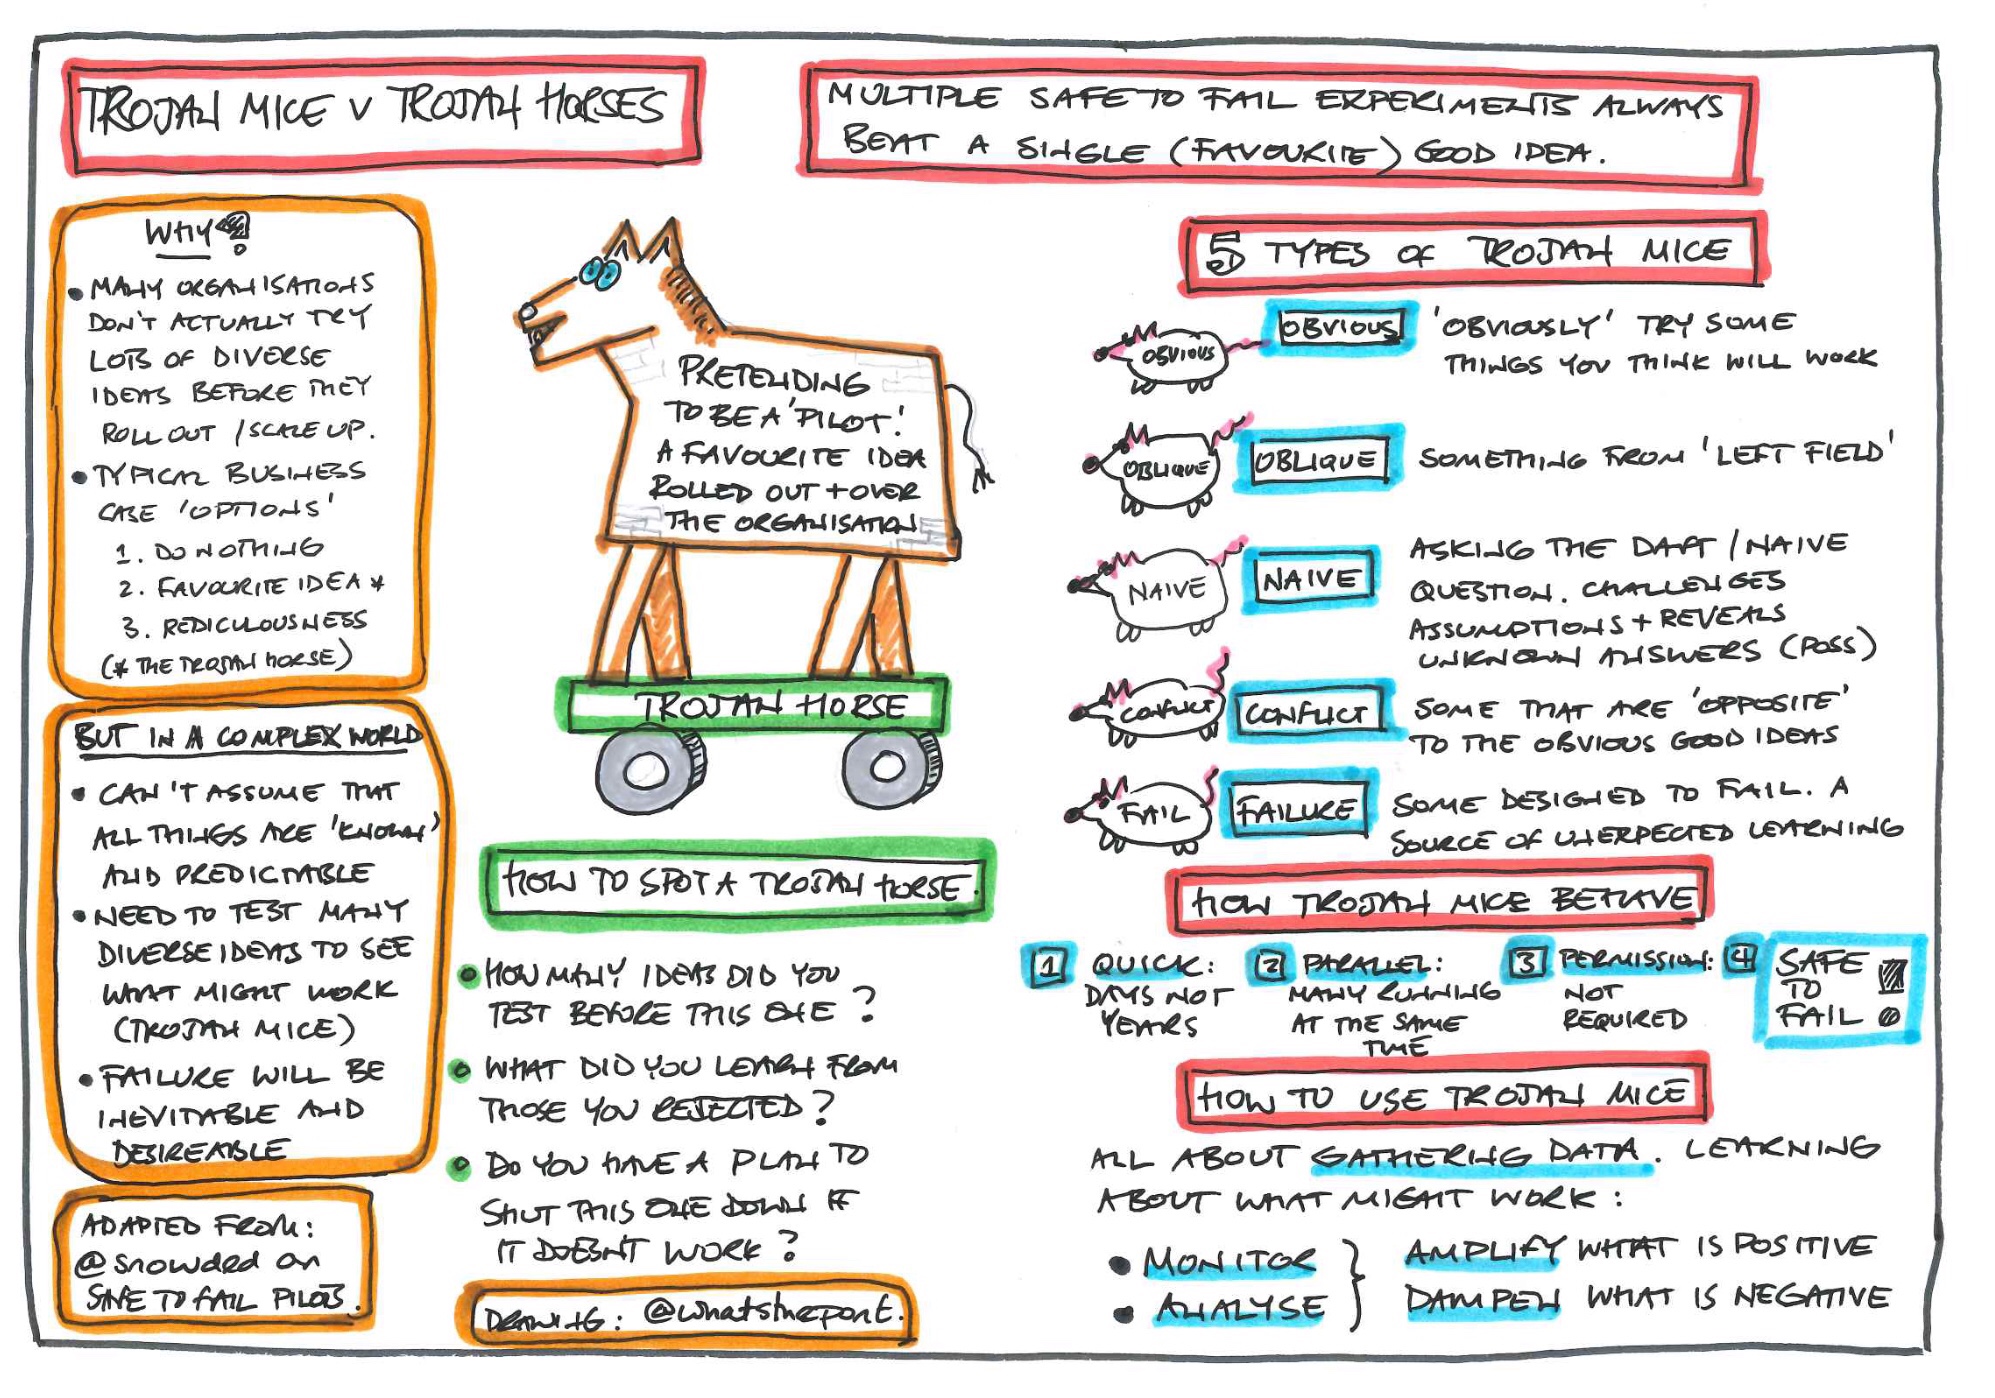 TROJAN MICE V TROJAN HORSES
MULTIPLE SAFE TO FAIL EXPERIMENTS ALWAYS
BEAT A SINGLE (FAVOURITE) GOOD IDEA.
WHY?!
• MANY ORGANISATIONS
DON'T ACTUALLY TRY
LOTS OF DIVERSE
IDEAS BEFORE THEY
ROLL OUT / SCALE UP.
• TYPICAL BUSINESS
CASE 'OPTIONS'
1. DO NOTHING
2. FAVOURITE IDEA *
3. REDICULOUSNESS
(* THE TROJAN HORSE)
BUT IN A COMPLEX WORLD
• CAN'T ASSUME THAT
ALL THINGS ARE 'KNOWN'
AND PREDICTABLE
• NEED TO TEST MANY
DIVERSE IDEAS TO SEE
WHAT MIGHT WORK
(TROJAN MICE)
• FAILURE WILL BE
INEVITABLE AND
DESIREABLE
ADAPTED FROM:
@snowded on
SAFE TO FAIL PILOTS.
PRETENDING
TO BE A 'PILOT'.
A FAVOURITE IDEA
ROLLED OUT + OVER
THE ORGANISATION
TROJAN HORSE
HOW TO SPOT A TROJAN HORSE.
• HOW MANY IDEAS DID YOU
TEST BEFORE THIS ONE?
• WHAT DID YOU LEARN FROM
THOSE YOU REJECTED?
• DO YOU HAVE A PLAN TO
SHUT THIS ONE DOWN IF
IT DOESN'T WORK?
DRAWING: @whatsthepont.
5 TYPES OF TROJAN MICE
OBVIOUS
OBVIOUS
'OBVIOUSLY' TRY SOME
THINGS YOU THINK WILL WORK
OBLIQUE
OBLIQUE
SOMETHING FROM 'LEFT FIELD'
NAIVE
NAIVE
ASKING THE DAFT / NAIVE
QUESTION. CHALLENGES
ASSUMPTIONS + REVEALS
UNKNOWN ANSWERS (POSS)
CONFLICT
CONFLICT
SOME THAT ARE 'OPPOSITE'
TO THE OBVIOUS GOOD IDEAS
FAIL
FAILURE
SOME DESIGNED TO FAIL. A
SOURCE OF UNEXPECTED LEARNING
HOW TROJAN MICE BEHAVE
1 QUICK:
DAYS NOT
YEARS
2 PARALLEL:
MANY RUNNING
AT THE SAME
TIME
3 PERMISSION:
NOT
REQUIRED
4 SAFE
TO
FAIL!
HOW TO USE TROJAN MICE
ALL ABOUT GATHERING DATA. LEARNING
ABOUT WHAT MIGHT WORK:
• MONITOR
• ANALYSE
AMPLIFY WHAT IS POSITIVE
DAMPEN WHAT IS NEGATIVE